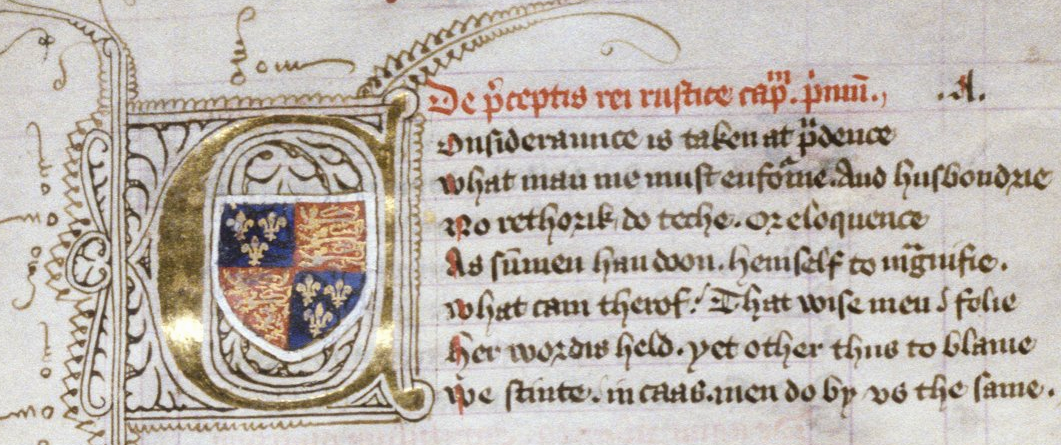 De p̄ceptis rei rustice cap̄m. p̄mū. .A.
Consideraunce is taken at pᵃdence
What man me must enfoᵃme. And husbondrie
No rethorik do teche. Or eloquence
As sūmen han doon. hemself to mᵃgnifie.
What cam therof? That wise men folie
Her wordis held. yet other thus to blame
We stinte. in caas. men do by vs the same.